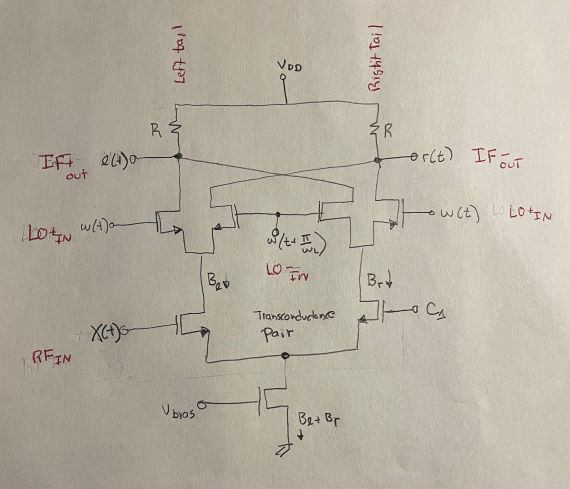 Left tail
Right Tail
VDD
R
R
IF+out
l(t)
r(t)
IF-OUT
LO+IN
w(t)
w(t+π/wL)
w(t)
LO+IN
LO-IN
Bl
Br
X(t)
Transconductance
Pair
C1
RFIN
Vbias
Bl+Br